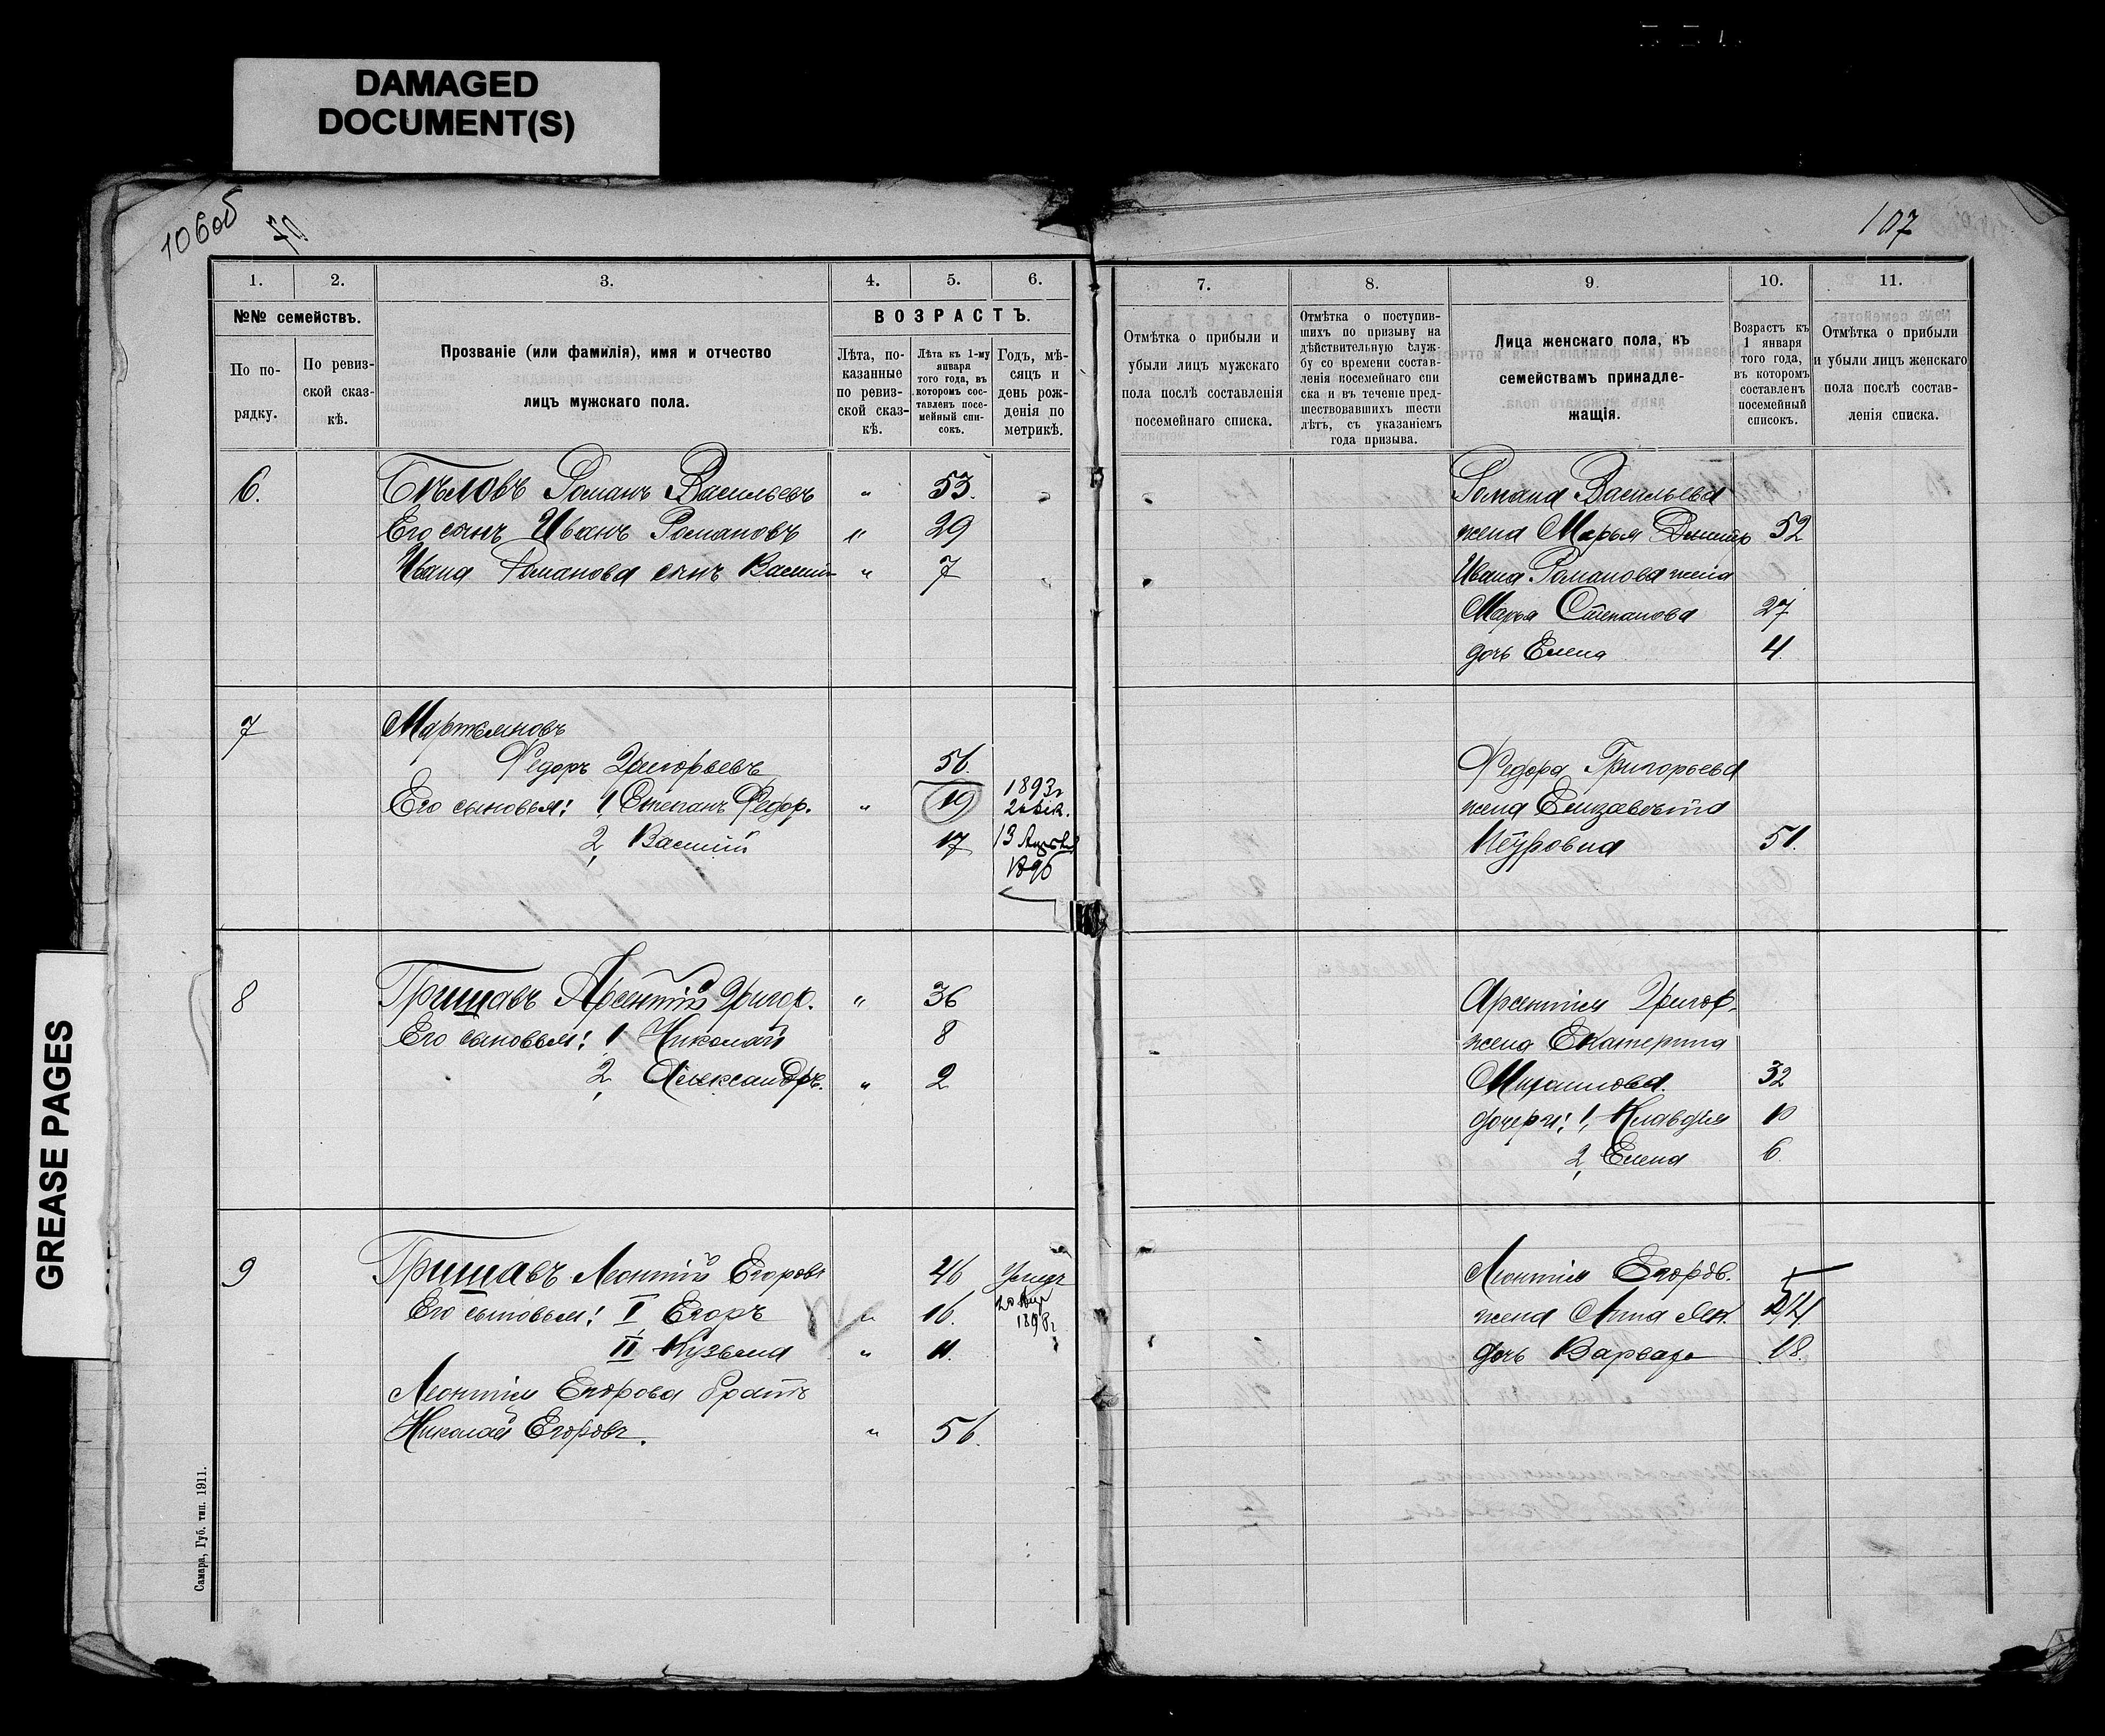 DAMAGED
DOCUMENT(S)
GREASE PAGES
106об
107
1.
2.
3.
4.
5.
6.
№№ семействъ.
По по-
рядку.
По ревиз-
ской сказ-
кѣ.
Прозваніе (или фамилія), имя и отчество
лицъ мужскаго пола.
ВОЗРАСТЪ.
Лѣта, по-
казанные
по ревиз-
ской сказ-
кѣ.
Лѣта къ 1-му
января
того года, въ
которомъ сос-
тавленъ посе-
мейный спи-
сокъ.
Годъ, мѣ-
сяцъ и
день рож-
денія по
метрикѣ.
6. Бѣловъ Романъ Васильевъ " 53.
Его сынъ Иванъ Романовъ " 29
Ивана Романова сынъ Васил " 7
7 Мартемяновъ
Федоръ Григорьевъ 56.
Его сыновья: 1, Степанъ Федор. " 19 1893г
2, Василій 17 13 Апрѣл
1896
8 Гришавъ Арсентій Григор. " 36
Его сыновья: 1 Николай 8
2, Александръ. " 2
9 Гришавъ Леонтій Егоровъ 46
Его сыновья: I, Егоръ " 16. 20 Апр
1898г
II Кузьма " 11.
Леонтія Егорова братъ
Николай Егоровъ. " 56.
Самара, Губ. тип. 1911.
7.
8.
9.
10.
11.
Отмѣтка о прибыли и
убыли лицъ мужскаго
пола послѣ составленія
посемейнаго списка.
Отмѣтка о поступив-
шихъ по призыву на
дѣйствительную служ-
бу со времени состав-
ленія посемейнаго спи
ска и въ теченіе пред-
шествовавшихъ шести
лѣтъ, съ указаніемъ
года призыва.
Лица женскаго пола, къ
семействамъ принадле-
жащія.
Возрастъ къ
1 января
того года,
въ которомъ
составленъ
посемейный
списокъ.
Отмѣтка о прибыли
и убыли лицъ женскаго
пола послѣ состав-
ленія списка.
Романа Васильева
жена Марья Дмитр 52
Ивана Романова жена
Марья Степанова 27
дочь Елена 4.
Федора Григорьева
жена Елизавета
Петровна 51.
Арсентія Григор.
жена Екатерина
Михаилова. 32
дочери: 1, Клавдія 10
2, Елена 6.
Леонтія Егоров.
жена Анна
дочь Варвара 18.